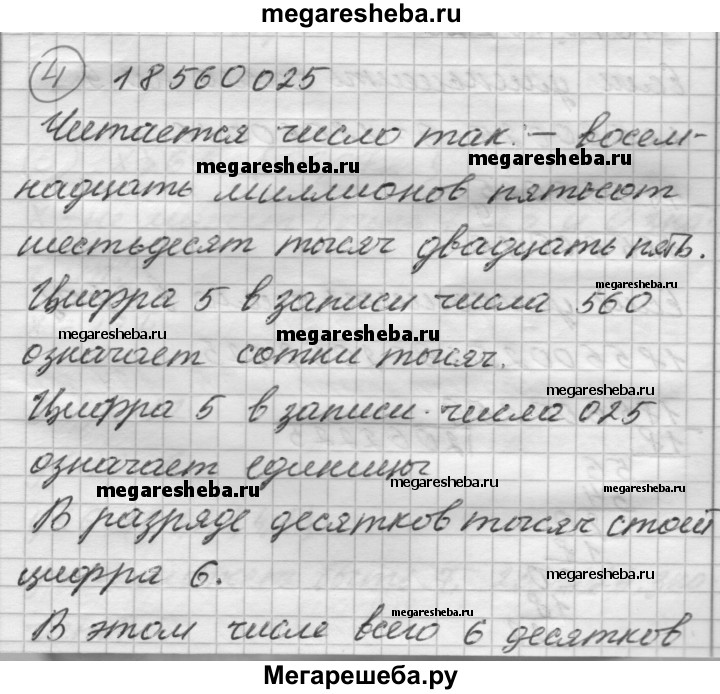 megaresheba.ru
4 18560025
Читается число так: – восем-
megaresheba.ru megaresheba.ru
надцать миллионов пятьсот
шестьдесят тысяч двадцать пять.
megaresheba.ru
Цифра 5 в записи числа 560
megaresheba.ru megaresheba.ru
означает сотни тысяч.
megaresheba.ru
Цифра 5 в записи числа 025
означает единицы
megaresheba.ru megaresheba.ru megaresheba.ru
В разряде десятков тысяч стоит
цифра 6.
megaresheba.ru
megaresheba.ru
В этом числе всего 6 десятков
Мегарешеба.ру